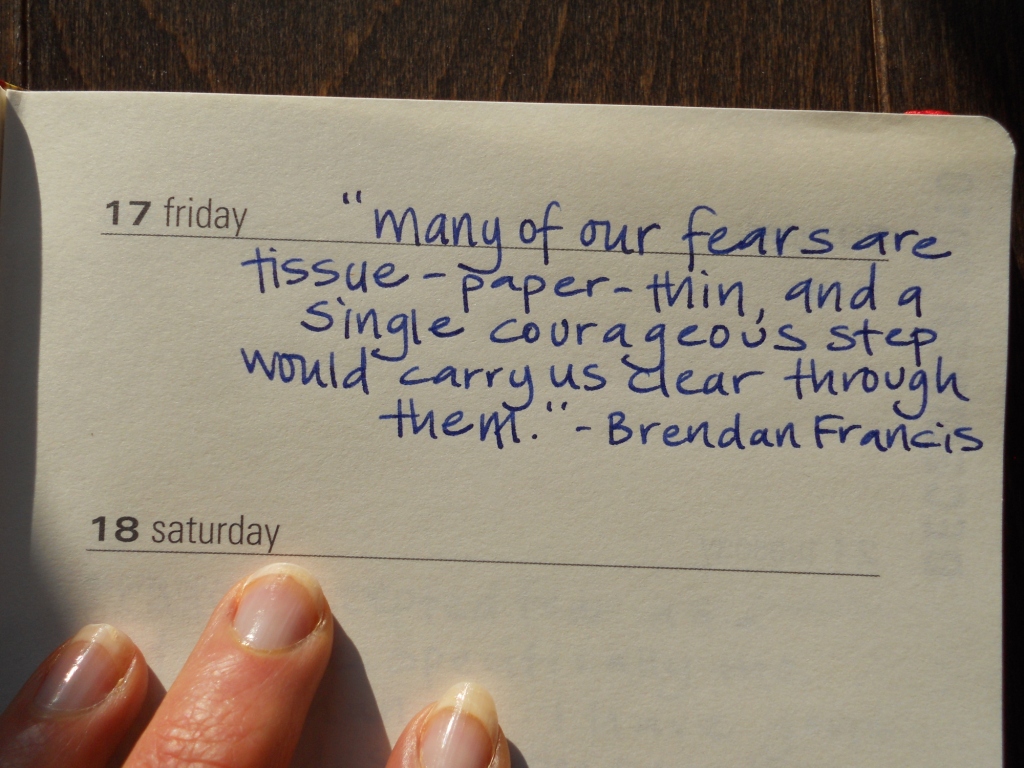 17 friday "many of our fears are
tissue-paper-thin, and a
single courageous step
would carry us clear through
them." - Brendan Francis
18 saturday